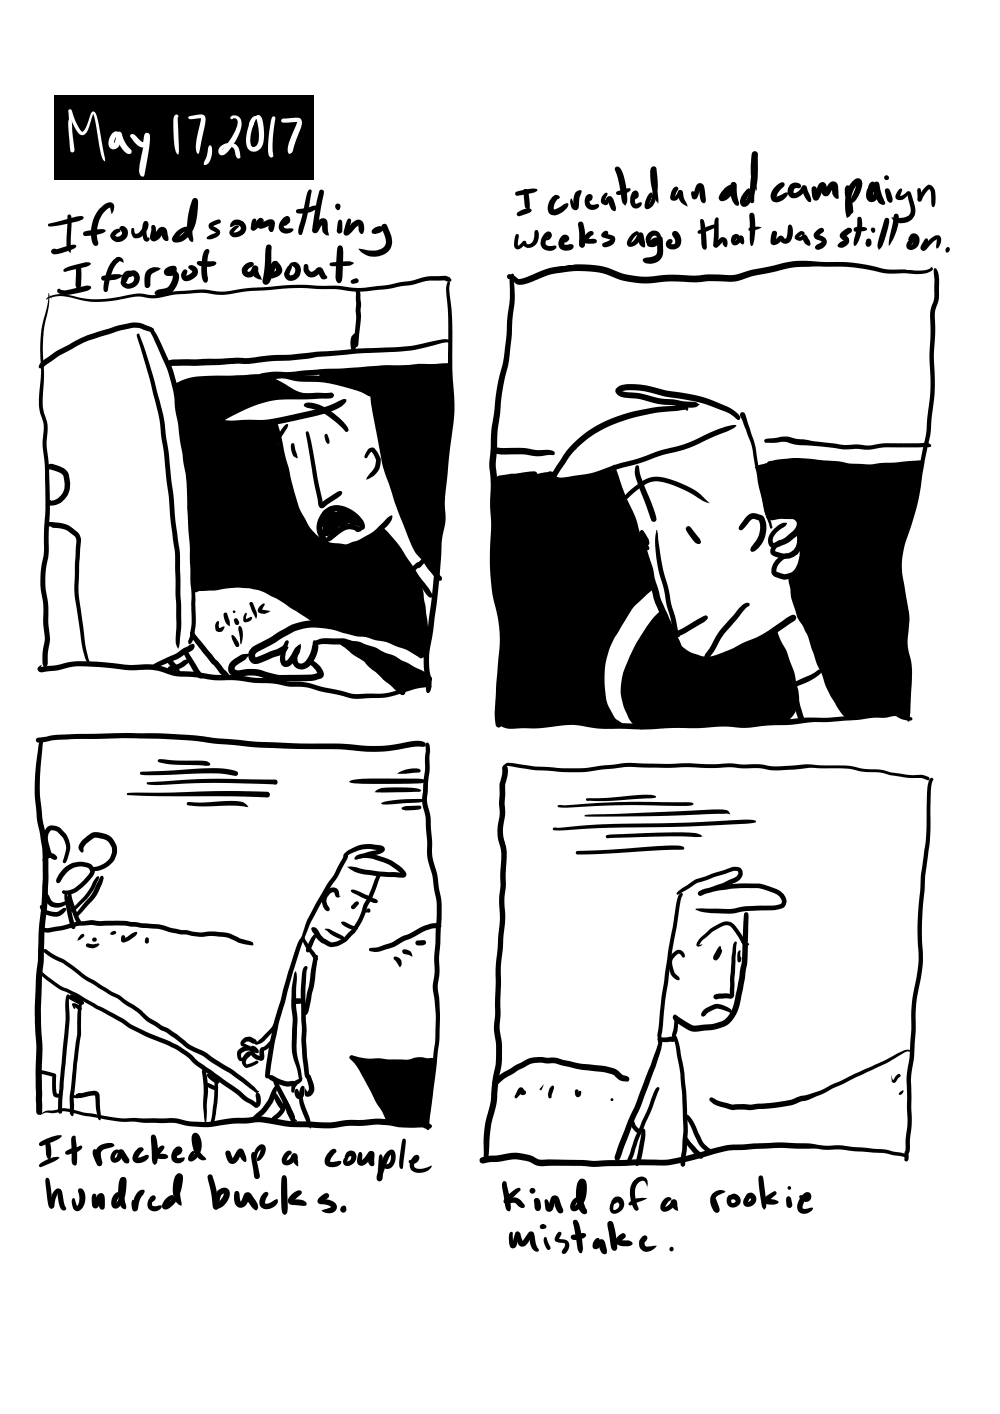 May 17, 2017
I found something
I forgot about.
click
I created an ad campaign
weeks ago that was still on.
It racked up a couple
hundred bucks.
Kind of a rookie
mistake.